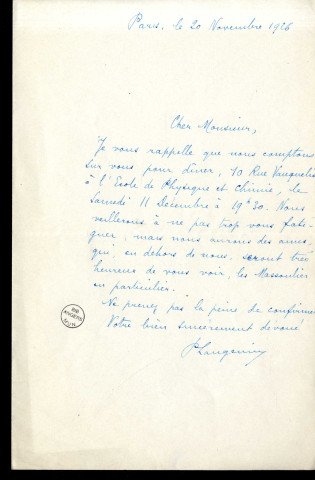 Paris, le 20 Novembre 1926
Cher Monsieur,
Je vous rappelle que nous comptons
sur vous pour dîner, 10 Rue Vauquelin
à l'Ecole de Physique et Chimie, le
Samedi 11 Décembre à 19h30. Nous
veillerons à ne pas trop vous fati-
guer, mais nous aurons des amis,
qui, en dehors de nous, seront très
heureux de vous voir, les Massoulier
en particulier.
Ne prenez pas la peine de confirmer
Votre bien sincèrement dévoué
PLangevin
BIB
ANGERS
MUN